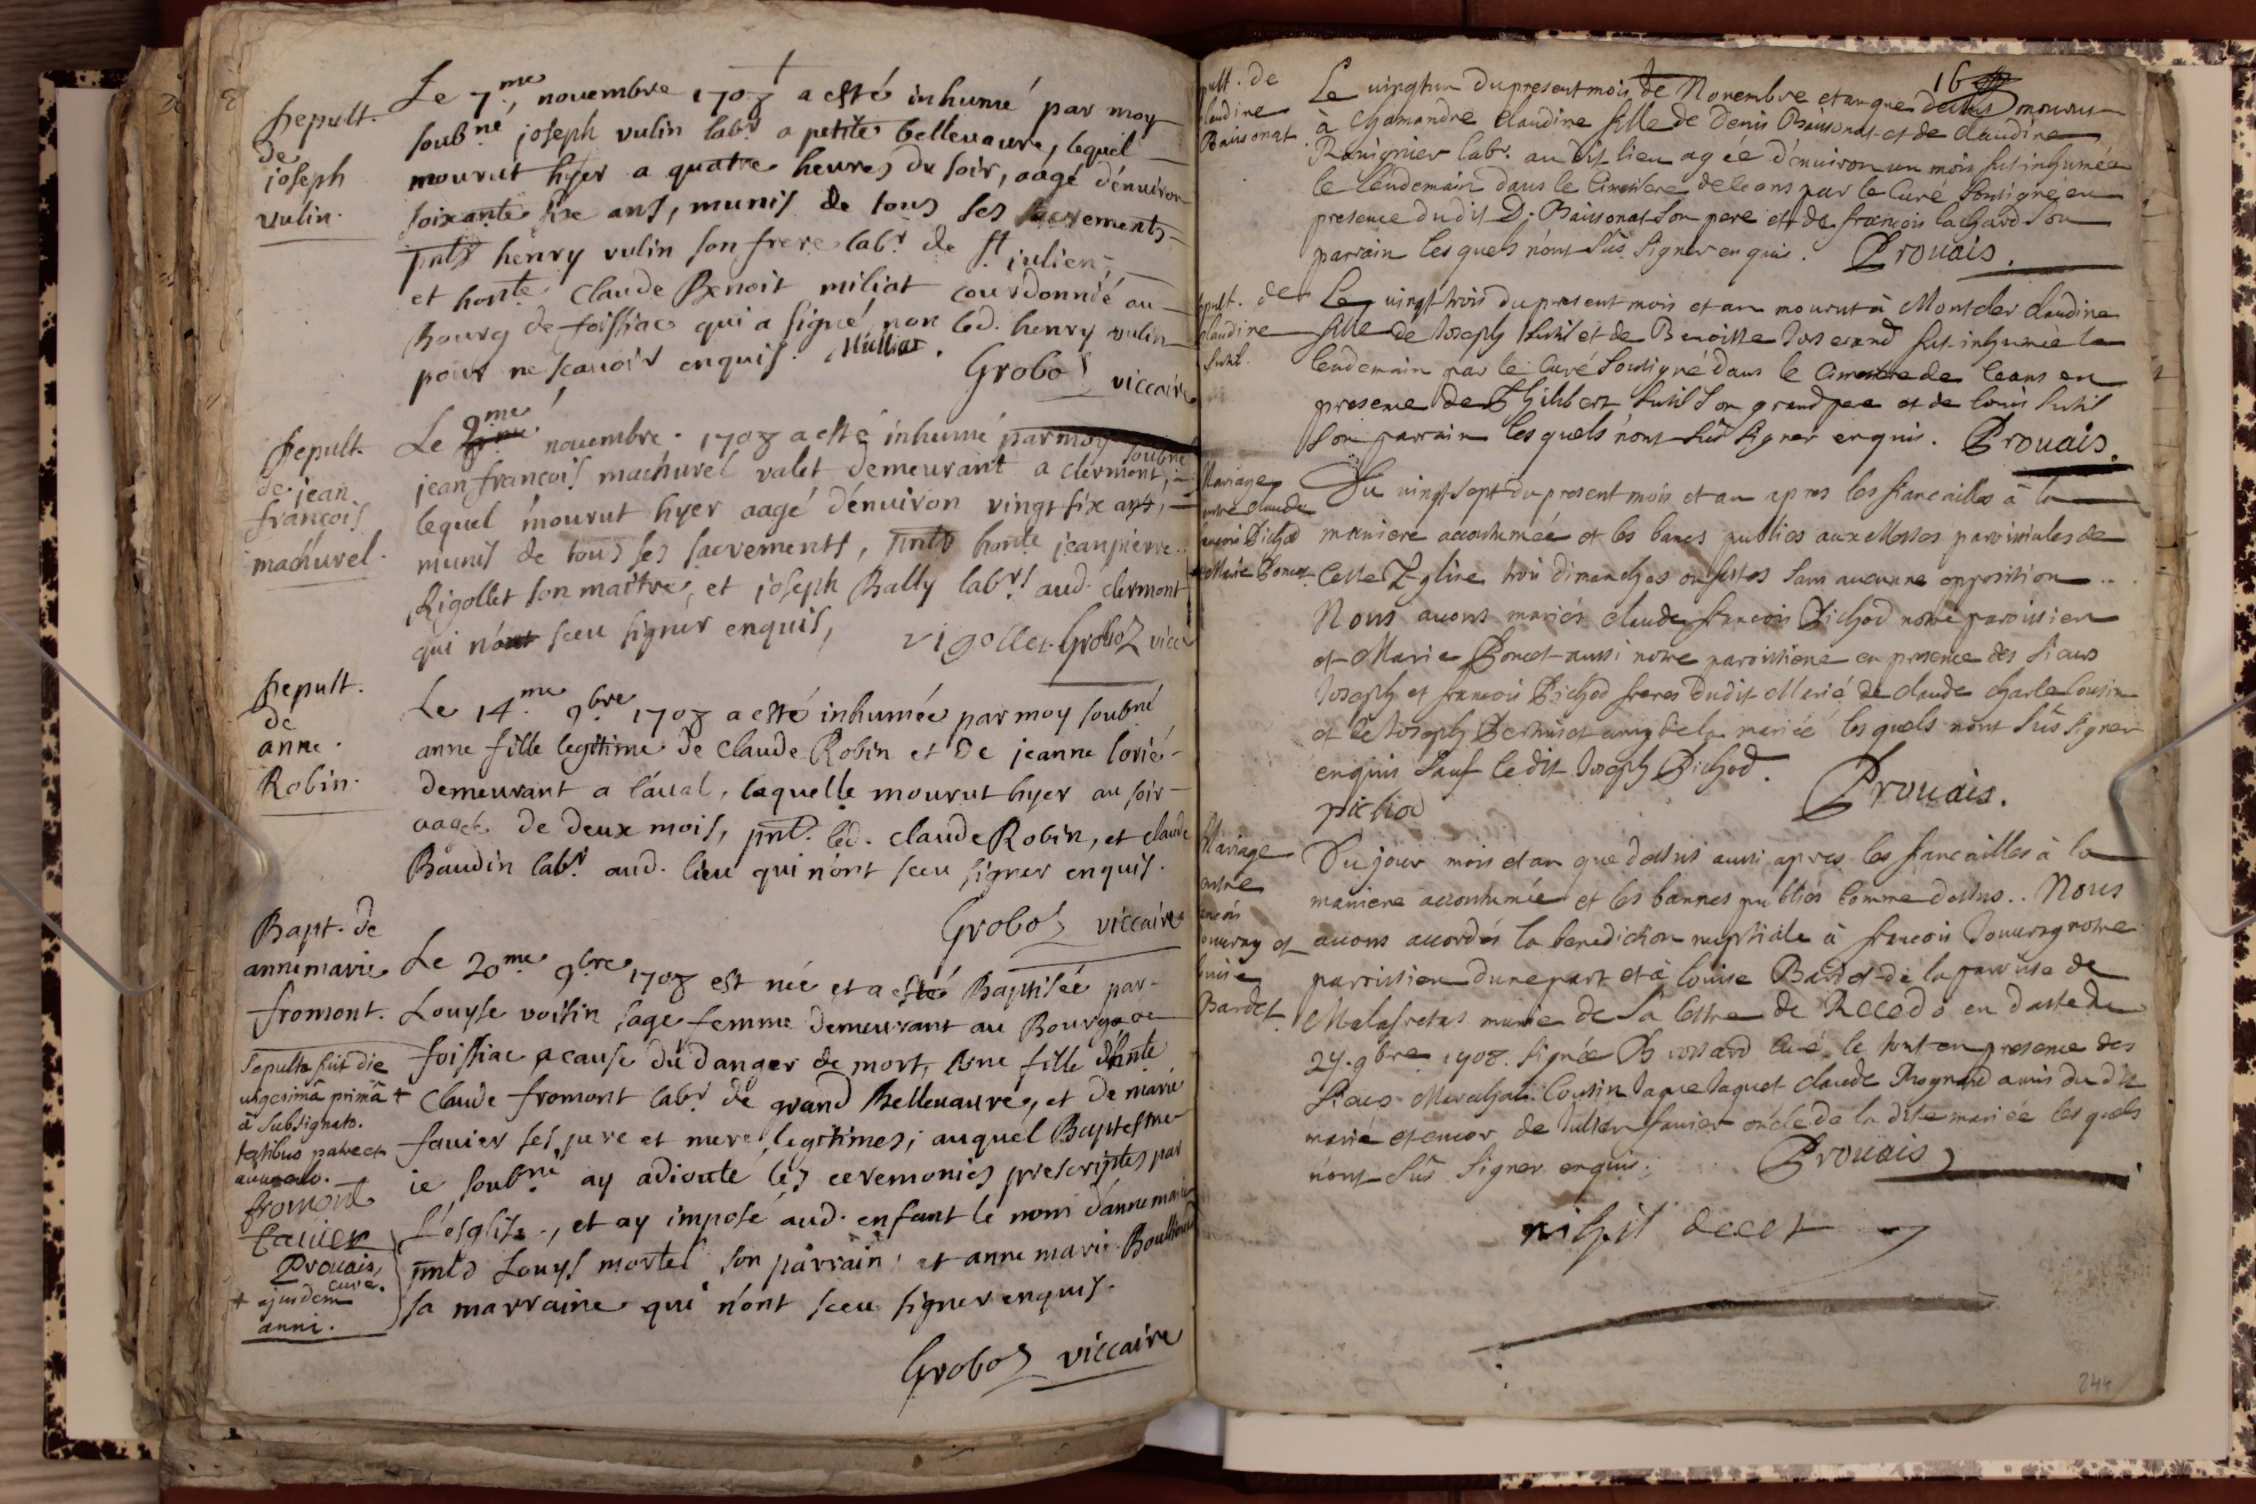 Sepult.
de
joseph
vulin.
Le 7.me novembre 1708 a esté inhumé par moy
soubné joseph vulin labr a petite bellevavre, lequel
mourut hyer a quatre heures du soir, aagé d'environ
soixante six ans, munis de tous ses sacrements
pnts henry vulin son frere labr de st julien,
et honte Claude Benoit miliat courdonnié au
Bourg de foissiac qui a signé non led. henry vulin
pour ne scavoir enquis. Milliat.
Groboz viccaire
Sepult.
de jean
françois
machurel.
Le 9me novembre. 1708 a esté inhumé par moy soubné
jean françois machurel valet demeurant a clermont,
lequel mourut hyer aagé d'environ vingt six ans,
munis de tous ses sacrements, pnts honte jeanpierre
Rigollet son maitre, et joseph Bally labrs aud. clermont
qui n'ont sceu signer enquis, rigollet Groboz vicc
Sepult.
de
anne.
Robin.
Le 14.me 9bre 1708 a esté inhumée par moy soubné
anne fille legitime de claude Robin et De jeanne lorié
demeurant a l'aval, laquelle mourut hyer au soir
aagée de deux mois, pnt. led. claude Robin, et claude
Baudin labr. aud. lieu qui n'ont sceu signer enquis.
Groboz viccaire
Bapt. de
annemarie
fromont.
Le 20me 9bre 1708 est née et a esté Baptisée par
Louyse voisin sage femme demeurant au Bourg de
foissiac a cause du danger de mort, une fille d'honte
claude fromont labr de grand Bellevavre, et de marie
favier ses pere et mere legitimes; auquel Baptesme
ie soubné ay adjouté les ceremonies prescriptes par
l'esglise., et ay imposé aud. enfant le nom d'annemarie
pnts Louys mortel son parrain, et anne marie
sa marraine qui n'ont sceu signer enquis.
Groboz viccaire
Sepulta fuit die
vigesimâ primâ +
à subsignato.
testibus patre et
fromont
favier
Prouais,
curé.
+ ejusdem
anni.
16
pult. de
laudine
Baissonat.
Le vingtun du present mois de Novembre et an que dessus mourut
à Chamandre Claudine fille de Denis Baissonat et de claudine
Ravignier labr. au dit lieu agée d'environ un mois fut inhumée
le lendemain dans le Cimitere de ceans par le Curé soussigné en
presence dudit D. Baissonat son pere et de françois lachard son
parrain lesquels n'ont sûs signer enquis. Prouais.
pult. de
laudine
Le vingt trois du present mois et an mourut à Montcler claudine
fille de Joseph et de Benoitte Josserand fut inhumée le
lendemain par le curé soussigné dans le Cimitere de ceans en
presence de Philibert son grand pere et de louis
son parrain lesquels n'ont sûs signer enquis. Prouais.
Mariage
entre claude
ançois Pichod
Marie Poncet.
Du vingt sept du present mois et an apres les fiancailles à la
maniere accoutumée et les bancs publies aux Messes parroissiales de
cette Eglise trois dimanches ou festes sans aucunne opposition..
Nous avons mariés claude françois Pichod notre paroissien
et Marie Poncet aussi notre paroissiene en presence des sieurs
Joseph et françois Pichod freres dudit Marié de claude charle cousin
et de Joseph amy de la mariée lesquels n'ont sûs signer
enquis sauf ledit Joseph Pichod.
pichod
Prouais.
Mariage
entre
ançois
et
ouise
Bardet
Du jour mois et an que dessus aussi apres les fiancailles à la
maniere accoutumée et les bannes publies comme dessus.. Nous
avons accordés la benediction nuptiale à françois notre
parroissien dune part et à louise Bardet de la parroisse de
Malafretas munie de sa lettre de Recedo en datte du
27. 9bre 1708. signée curé le tout en presence des
sieurs cousin Jaque Jaquet claude amis du dit
marié et encor de Julien favier oncle de la dite mariée lesquels
n'ont sûs signer enquis. Prouais
nihil deest
244